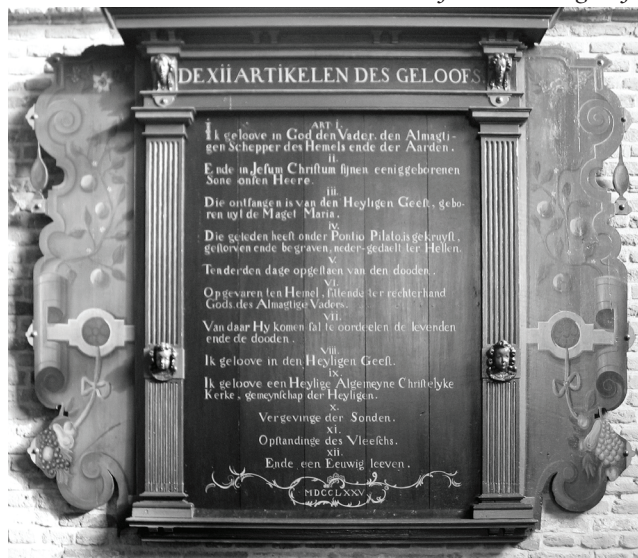 DE XII ARTIKELEN DES GELOOFS.
ART i.
Ik geloove in God den Vader, den Almagti-
gen Schepper des Hemels ende der Aarden.
ii.
Ende in Jesum Christum sijnen eeniggeborenen
Sone onsen Heere.
iii.
Die ontfangen is van den Heyligen Geest, gebo-
ren uyt de Maget Maria.
iv.
Die geleden heeft onder Pontio Pilato, is gekruyst,
gestorven ende begraven, neder-gedaelt ter Hellen.
V.
Ten derden dage opgestaen van den dooden.
VI.
Opgevaren ten Hemel, sittende ter rechterhand
Gods des Almagtige Vaders.
VII.
Van daar Hy komen sal te oordeelen de levenden
ende de dooden.
Viii.
Ik geloove in den Heyligen Geest.
ix.
Ik geloove een Heylige Algemeyne Christelyke
Kerke, gemeynschap der Heyligen.
x.
Vergevinge der Sonden.
xi.
Opstandinge des Vleeschs.
xii.
Ende een Eeuwig leeven.
MDCCLXXV